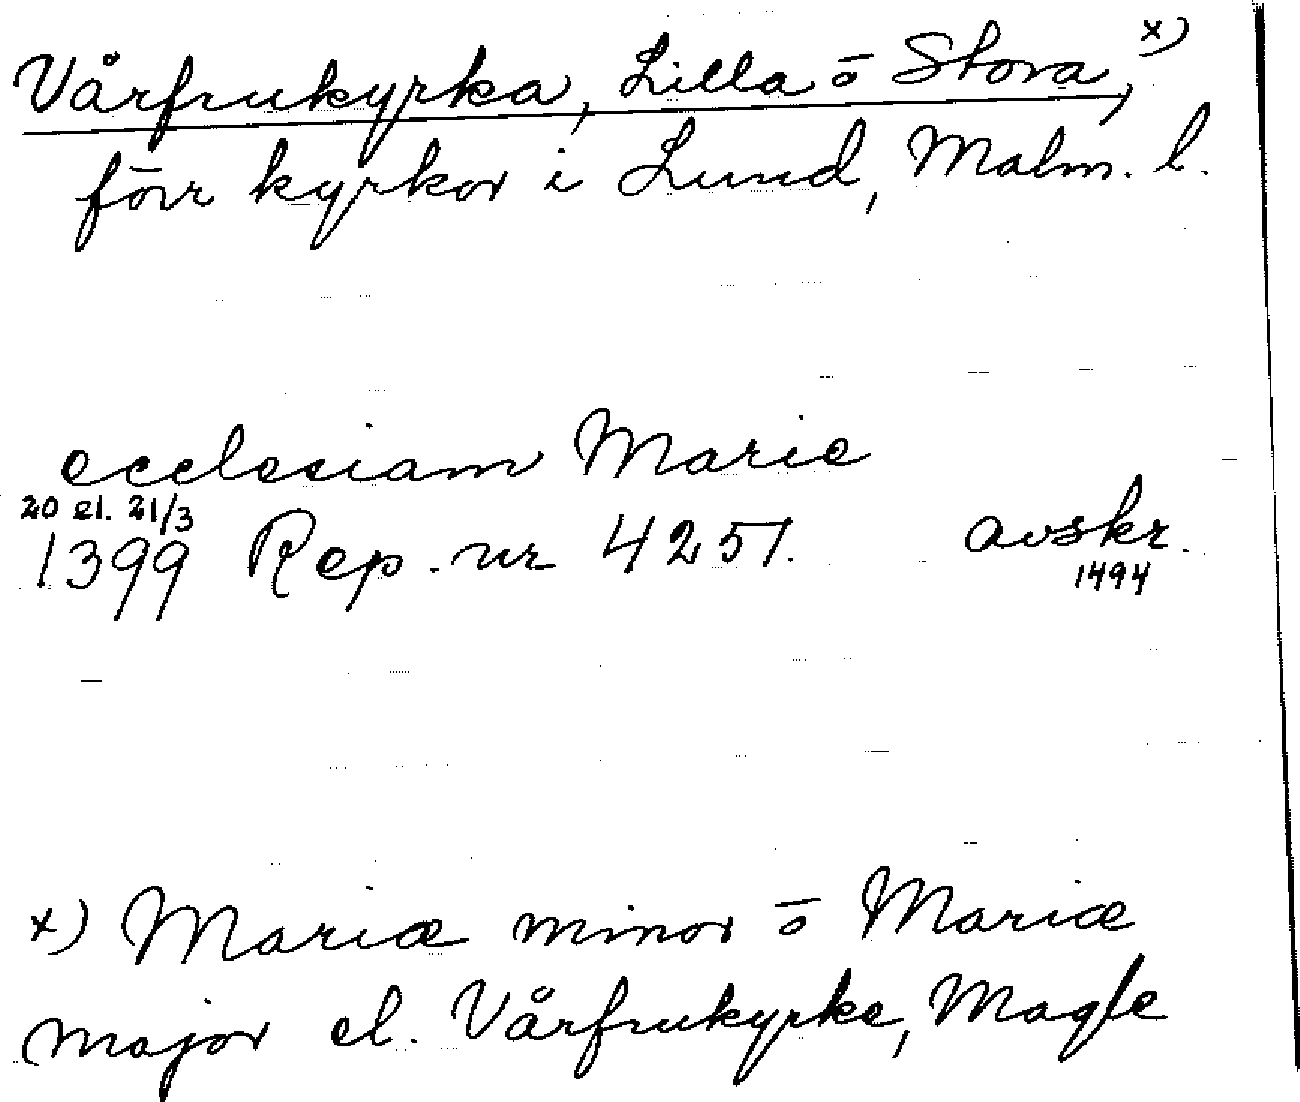 Vårfrukyrka, Lilla o Stora, x)
förr kyrkor i Lund, Malm. l.
ecclesiam Marie
20 el. 21/3
1399 Rep. nr 4257. avskr.
1494
x) Mariæ minor o Mariæ
major el. Vårfrukyrke, Magle